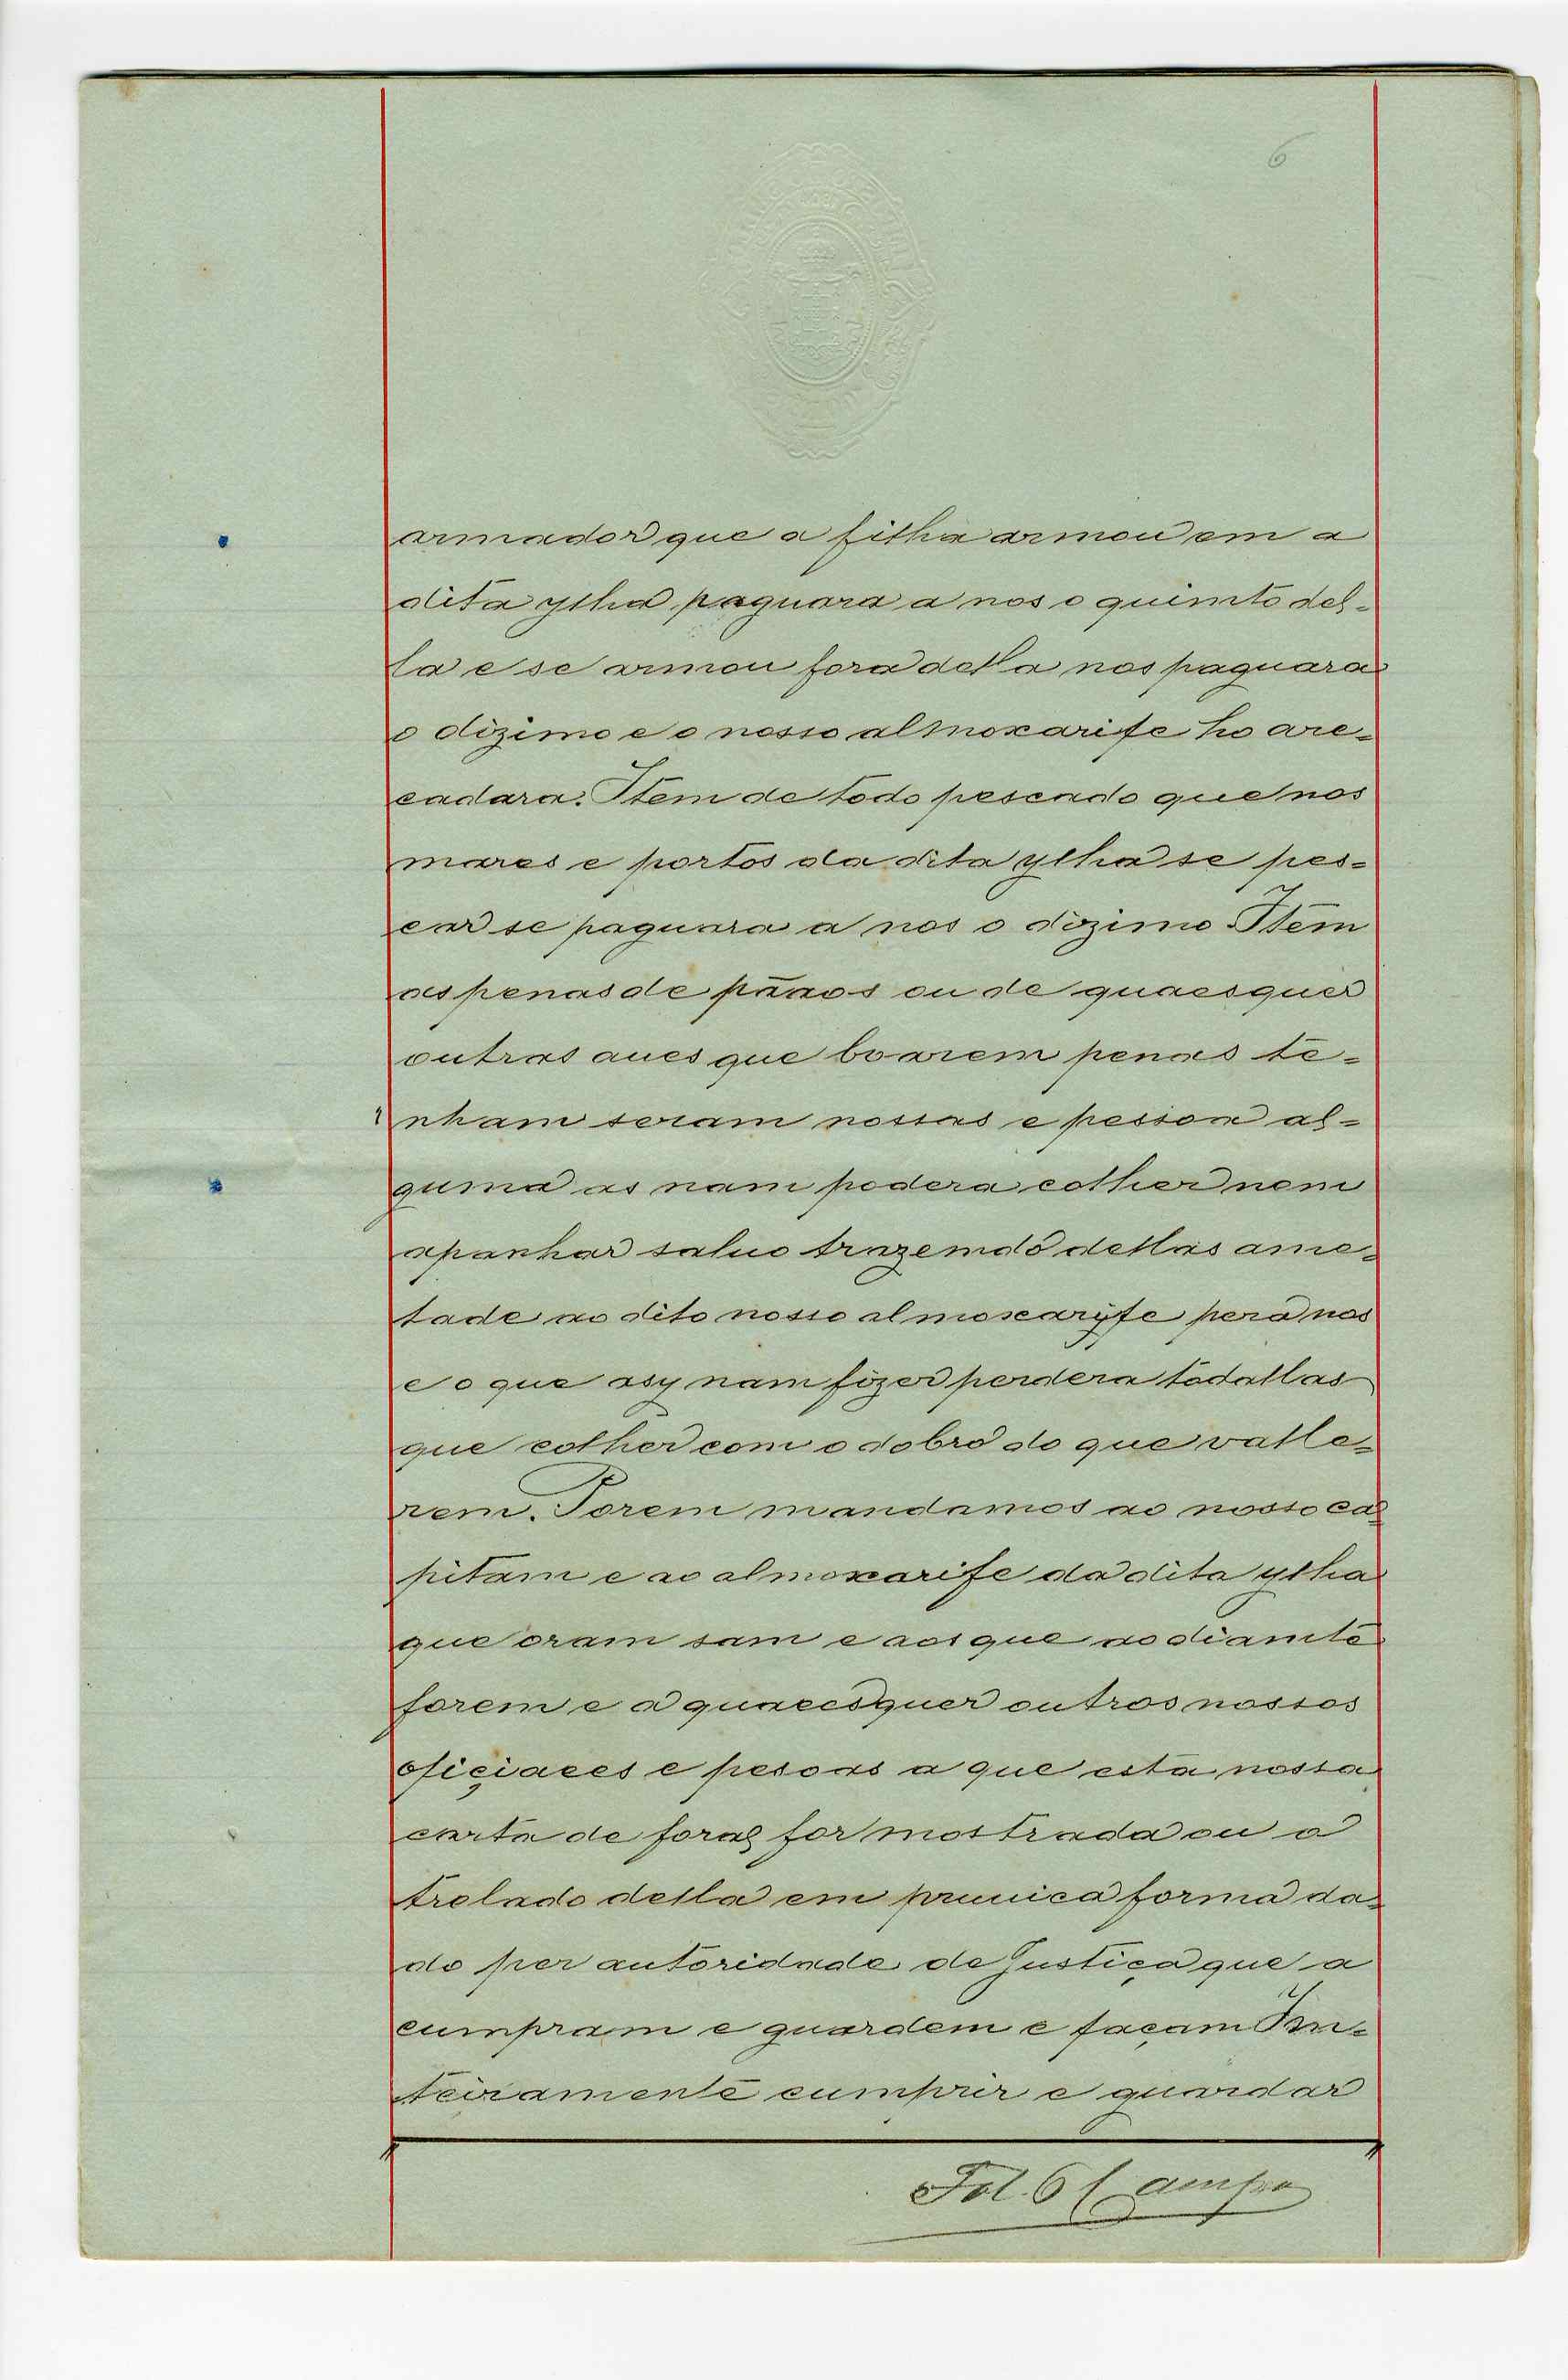 6
armador que a filha armou em a
dita ylha paguara a nos o quimto del=
la e se armou fora della nos paguara
o dizimo e o nosso almoxarife ho are=
cadara. Item de todo pescado que nos
mares e portos da dita ylha se pes=
car se paguara a nos o dizimo Item
as penas de pãaos ou de quaesquer
outras aues que boarem penas te=
nham seram nossas e pessoa al=
guma as nam podera colher nem
apanhar saluo trazemdo dellas ame=
tade ao dito nosso almoxaryfe pera nos
e o que asy nam fizer perdera todallas
que colher com o dobro do que valle=
rem. Porem mandamos ao nosso ca=
pitam e ao almoxarife da dita ylha
que oram sam e aos que ao diamte
forem e a quaeesquer outros nossos
ofiçiaees e pesoas a que esta nossa
carta de foral for mostrada ou o
trelado della em pruuica forma da=
do per autoridade de Justiça que a
cumpram e guardem e façam Im=
teiramente cumprir e guardar
Fol. 6 Campos